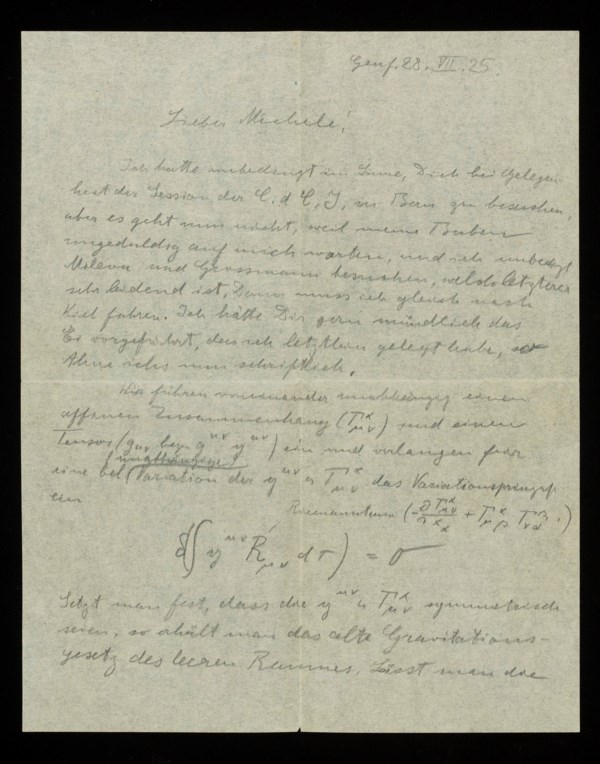 Genf. 28. VII. 25.
Lieber Michele!
Ich hatte unbedingt im Sinne, Dich bei Gelegen-
heit der Session der C. d C. I, in Bern zu besuchen,
aber es geht nun nicht, weil meine Buben
ungeduldig auf mich warten, und ich unbedingt
Mileva und Grossmann besuchen, welch letzterer
sehr leidend ist, Dann muss ich gleich nach
Kiel fahren. Ich hätte Dir gern mündlich das
Ei vorgeführt, das ich letzthin gelegt habe,
thue ichs nun schriftlich.
Wir führen voneinander unabhängig einen
affinen Zusammenhang (Γ^α_μν) und einen
Tensor (g_μν bezw. g^μν 𝔤^μν) ein und verlangen für
(unabhängige)
eine bel. Variation der 𝔤^μν u Γ^α_μν das Variationsprinzip
ein
Riemanntensor (-∂Γ^α_μν/∂x_α + Γ^α_μβ Γ^β_να .)
δ(∫ 𝔤^μν R_μν dτ) = 0
Setzt man fest, dass die 𝔤^μν u Γ^α_μν symmetrisch
seien, so erhält man das alte Gravitations-
gesetz des leeren Raumes. Lässt man die